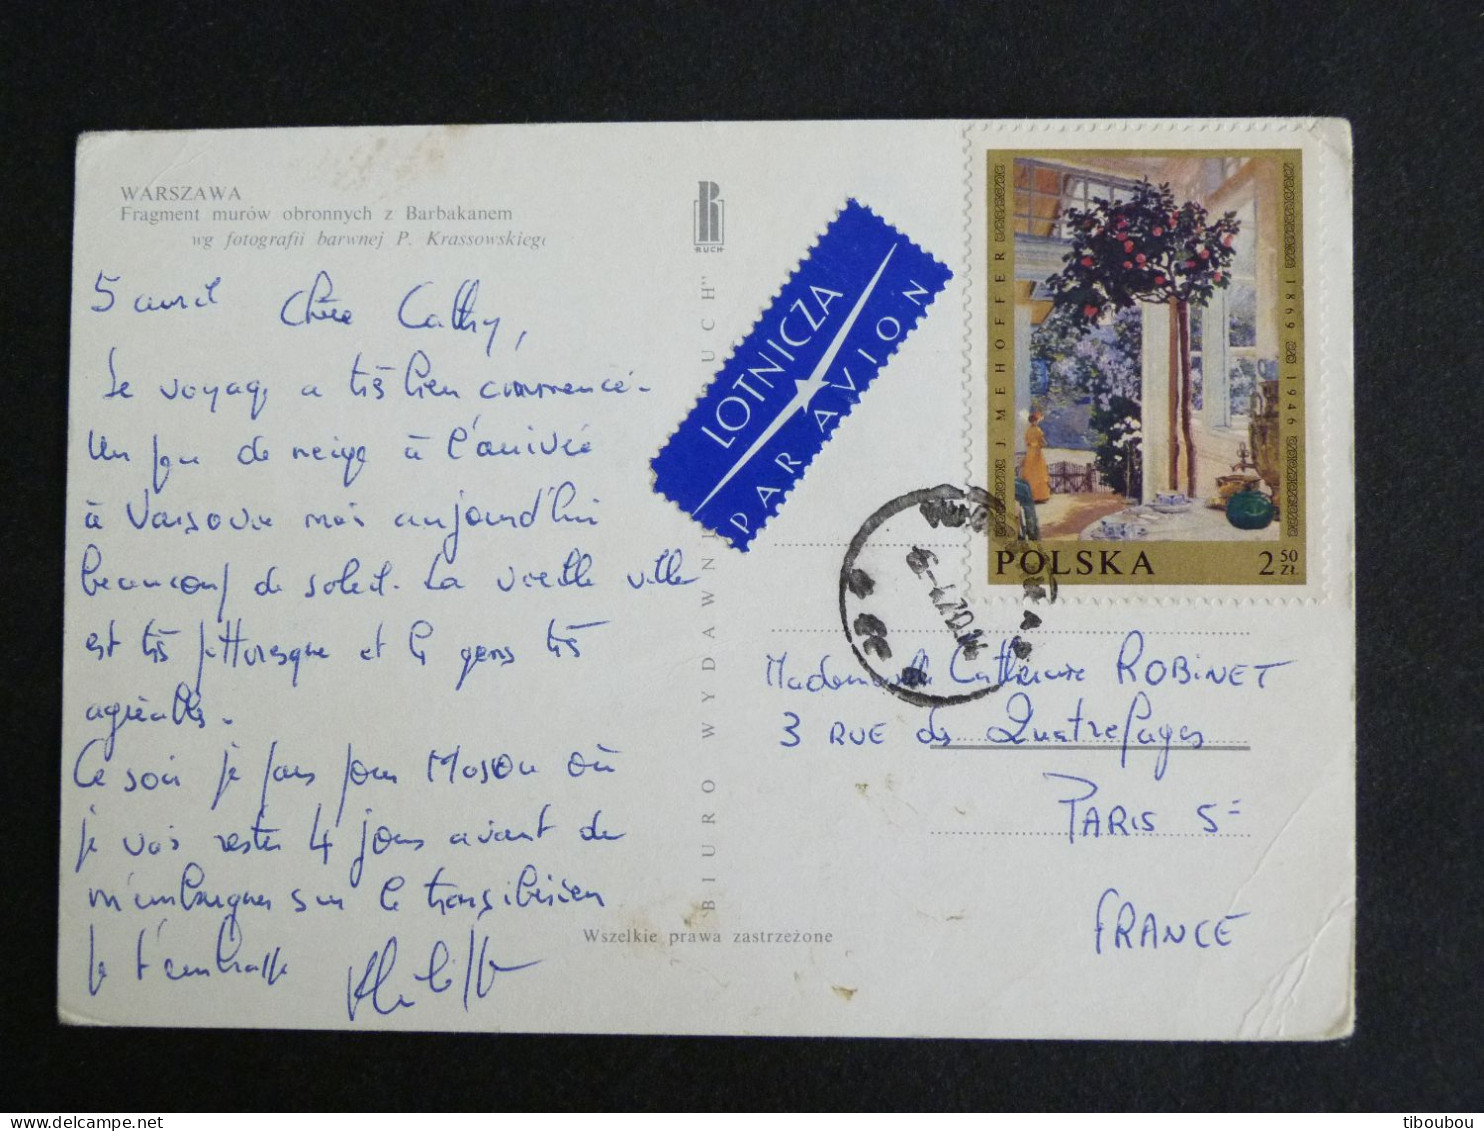 WARSZAWA
Fragment murów obronnych z Barbakanem
wg fotografii barwnej P. Krassowskiego
RUCH
5 avril Chère Cathy,
Le voyage a très bien commencé -
Un peu de neige à l'arrivée
à Varsovie mais aujourd'hui
beaucoup de soleil. La vieille ville
est très pittoresque et les gens très
agréables.
Ce soir je pars pour Moscou où
je vais rester 4 jours avant de
m'embarquer sur le transsibérien
Je t'embrasse Philippe
BIURO WYDAWN RUCH"
Wszelkie prawa zastrzeżone
LOTNICZA
PAR AVION
J. MEHOFFER
1869 1946
POLSKA 2 50 ZŁ
6-4.70
Mademoiselle Catherine ROBINET
3 RUE des Quatrefages
PARIS 5e
FRANCE
tiboubou